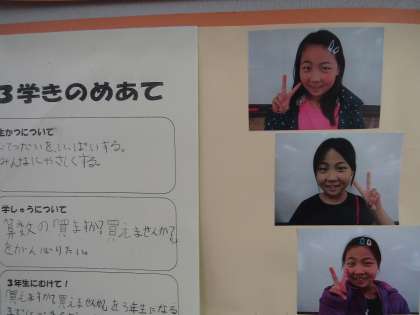 3学きのめあて
生かつについて
てつだいをいっぱいする。
みんなにやさしくする。
学しゅうについて
算数の「買えますか?買えませんか?」
をがんばりたい
3年生にむけて!
「買えますか?買えませんか?」を3年生になる